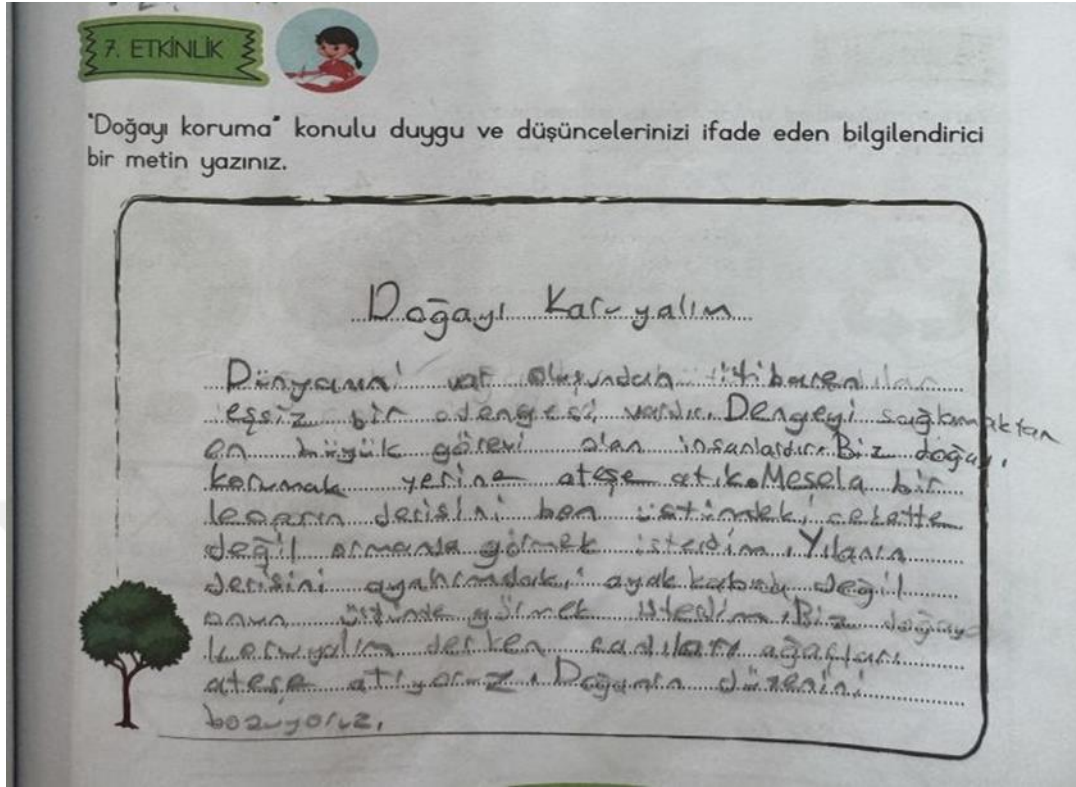 7. ETKİNLİK
"Doğayı koruma" konulu duygu ve düşüncelerinizi ifade eden bilgilendirici
bir metin yazınız.
Doğayı Koruyalım
Dünyanın var oluşundan itibaren
eşsiz bir dengesi vardır. Dengeyi sağlamaktan
en büyük görevi olan insanlardır. Biz doğayı
korumak yerine ateşe atık. Mesela bir
leoparın derisini ben üstümdeki cekette
değil ormanda görmek isterdim. Yılanın
derisini ayağımdaki ayakkabımda değil
onun üstünde görmek isterdim. Biz doğayı
koruyalım derken canlıları ağaçları
ateşe atıyoruz. Doğanın düzenini
bozuyoruz.